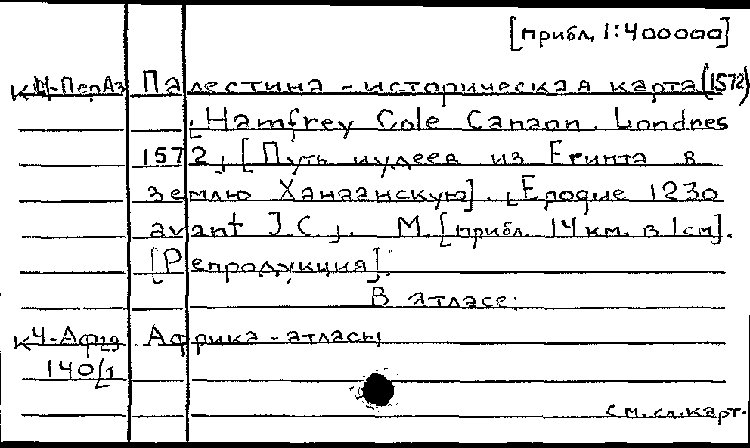 [прибл. 1:400000]
К Ч-ПерАз Палестина - историческая карта (1572)
Hamfrey Cole Canaan. Londres
1572, [Путь иудеев из Египта в
землю Ханаанскую]. [Epoque 1230
avant J.C.]. М. [прибл. 14 км. в 1 см].
[Репродукция].
В атласе:
К Ч-Афр Африка - атласы
140/1
см. сл. карт.